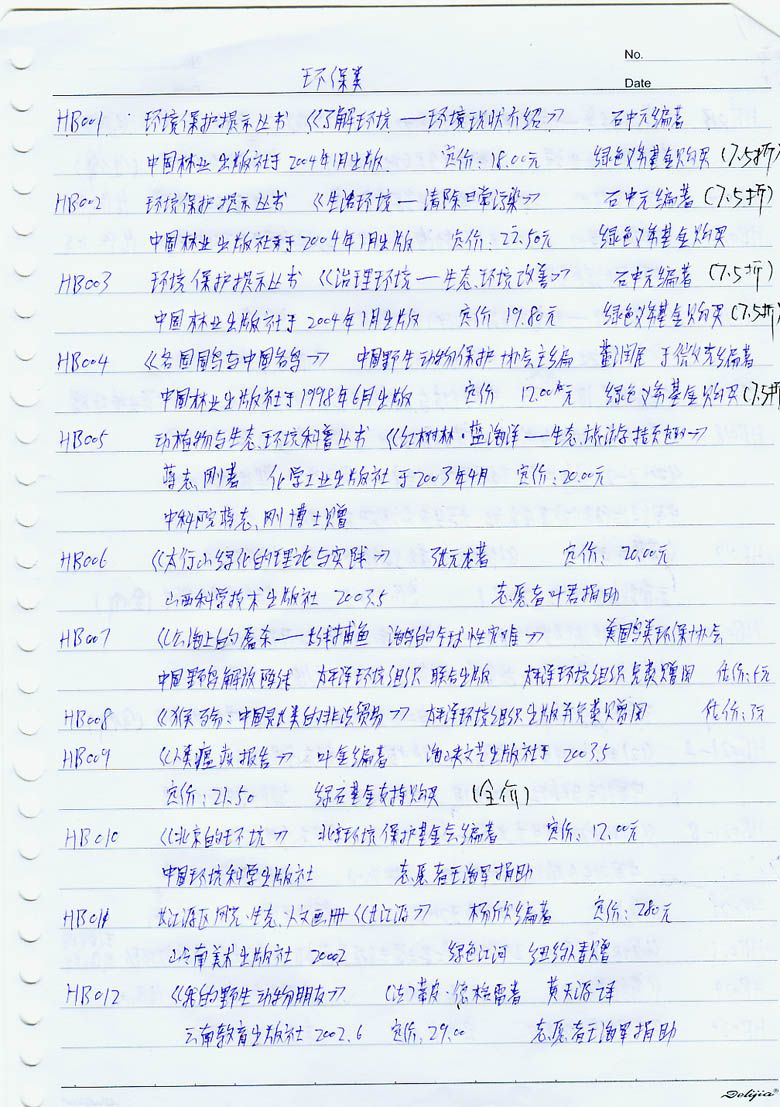 No.
环保类
Date
HB001 环境保护提示丛书 《了解环境——环境现状介绍》 石中元编著
中国林业出版社于2004年1月出版 定价:18.00元 绿色义务基金购买(7.5折)
HB002 环境保护提示丛书 《生活环境—清除日常污染》 石中元编著(7.5折)
中国林业出版社于2004年1月出版 定价:22.50元 绿色义务基金购买
HB003 环境保护提示丛书 《治理环境—生态环境改善》 石中元编著(7.5折)
中国林业出版社于2004年1月出版 定价 19.80元 绿色义务基金购买(7.5折)
HB004 《各国国鸟与中国名鸟》 中国野生动物保护协会主编 编著
中国林业出版社于1998年6月出版 定价 12.00元 绿色义务基金购买(7.5折
HB005 动植物与生态环境科普丛书 《红树林·蓝海洋——生态旅游
蒋志刚著 化学工业出版社于2003年4月 定价:20.00元
中科院蒋志刚博士赠
HB006 《太行山绿化的理论与实践》 张元龙著 定价:20.00元
山西科学技术出版社 2003.5 志愿者叶君捐助
HB007 《公海上的屠杀—— 海鸟的全球性灾难》 美国鸟类环保协会
中国野鸟 太平洋环境组织 联合出版 太平洋环境组织免费赠阅 估价:5元
HB008 中国龟类的非法贸易》 太平洋环境组织出版并免费赠阅 估价:3元
HB009 《人类瘟疫报告》 叶金编著 海峡文艺出版社于2003.5
定价:21.50 绿石基金支持购买 (全价)
HB010 《北京的环境》 北京环境保护基金会编著 定价:12.00元
中国环境科学出版社 志愿者王海军捐助
HB011 长江源区阿克·生态人文画册《长江源》 杨欣编著 定价:280元
岭南美术出版社 2002 绿色江河 赠
HB012 《我的野生动物朋友》 (法)蒂皮·德格雷著 黄天源译
云南教育出版社 2002.6 定价:29.00 志愿者王海军捐助
Delijia